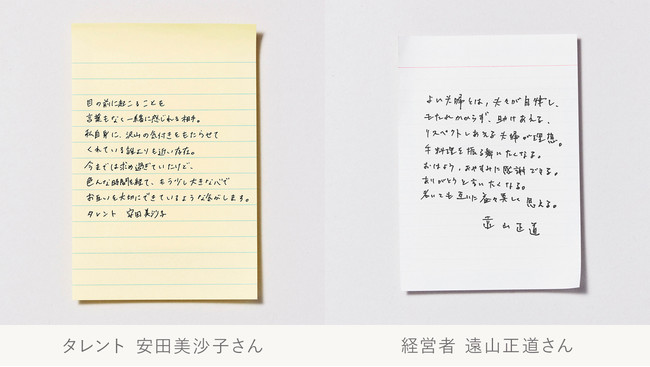 目の前に起こることも
言葉もなく一緒に感じれる相手。
私自身に、沢山の気付きをもたらせて
くれている誰よりも近い存在。
今までは求め過ぎていたけど、
色んな時間を経て、もう少し大きな心で
お互いを大切にできているような気がします。
タレント 安田美沙子
よい夫婦とは、夫々が自律し、
もたれかからず、助けあえる、
リスペクトしあえる夫婦が理想。
手料理を振る舞いたくなる。
おはよう、おやすみに感謝できる。
ありがとうと言いたくなる。
老いても互いに益々美しく思える。
遠山正道
タレント 安田美沙子さん
経営者 遠山正道さん